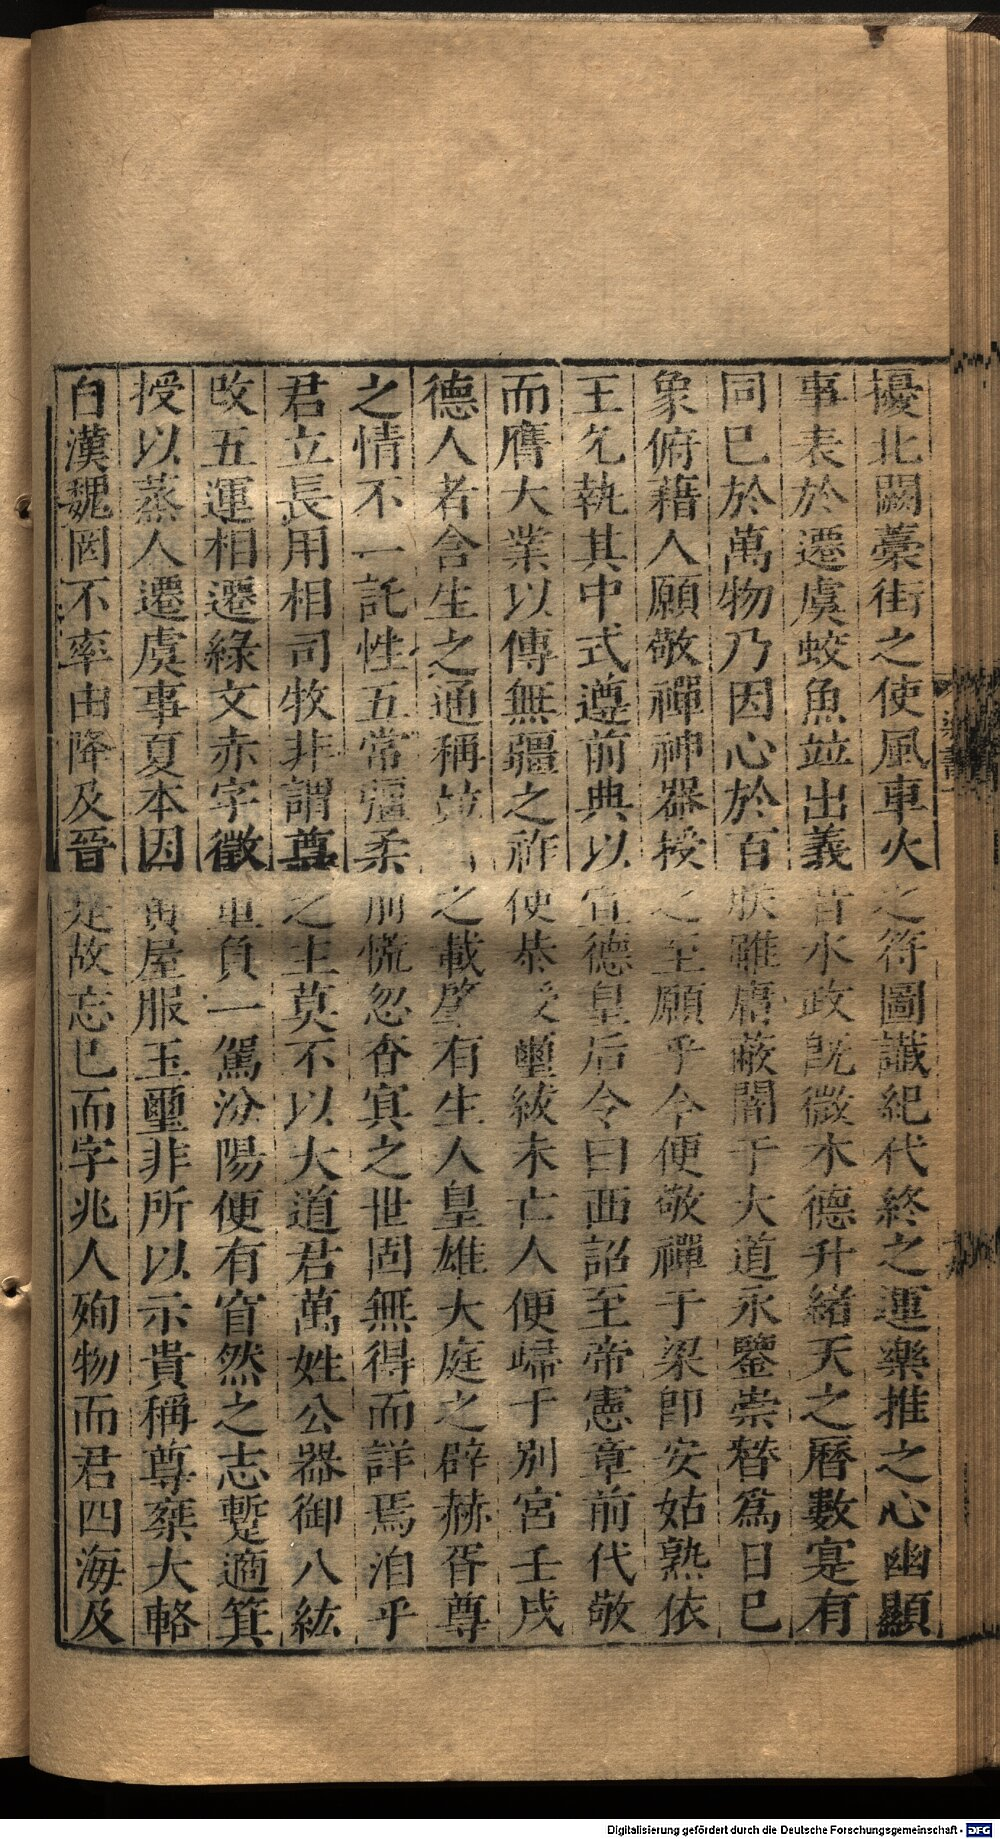 擾北闕藁街之使風車火之符圖讖紀代終之運樂推之心幽顯
事表於遷虞蛟魚竝出義昔水政既微木德升緒天之曆數寔有
同已於萬物乃因心於百朕雖庸蔽闇于大道永鑒崇替爲日已
象俯藉人願敬禪神器授之至願乎今便敬禪于梁卽安姑熟依
王允執其中式遵前典以宣德皇后令曰西詔至帝憲章前代敬
而膺大業以傳無疆之祚使恭受璽紱未亡人便歸于別宮壬戌
德人者含生之通稱之載肇有生人皇雄大庭之辟赫胥尊
之情不一託性五常彊柔前慌忽杳冥之世固無得而詳焉洎乎
君立長用相司牧非謂尊之主莫不以大道君萬姓公器御八紘
改五運相遷綠文赤字徵重負一駕汾陽便有窅然之志暫適箕
授以蒸人遷虞事夏本因黃屋服玉璽非所以示貴稱尊乘大輅
自漢魏罔不率由降及晉是故忘已而字兆人殉物而君四海及
Digitalisierung gefördert durch die Deutsche Forschungsgemeinschaft - DFG